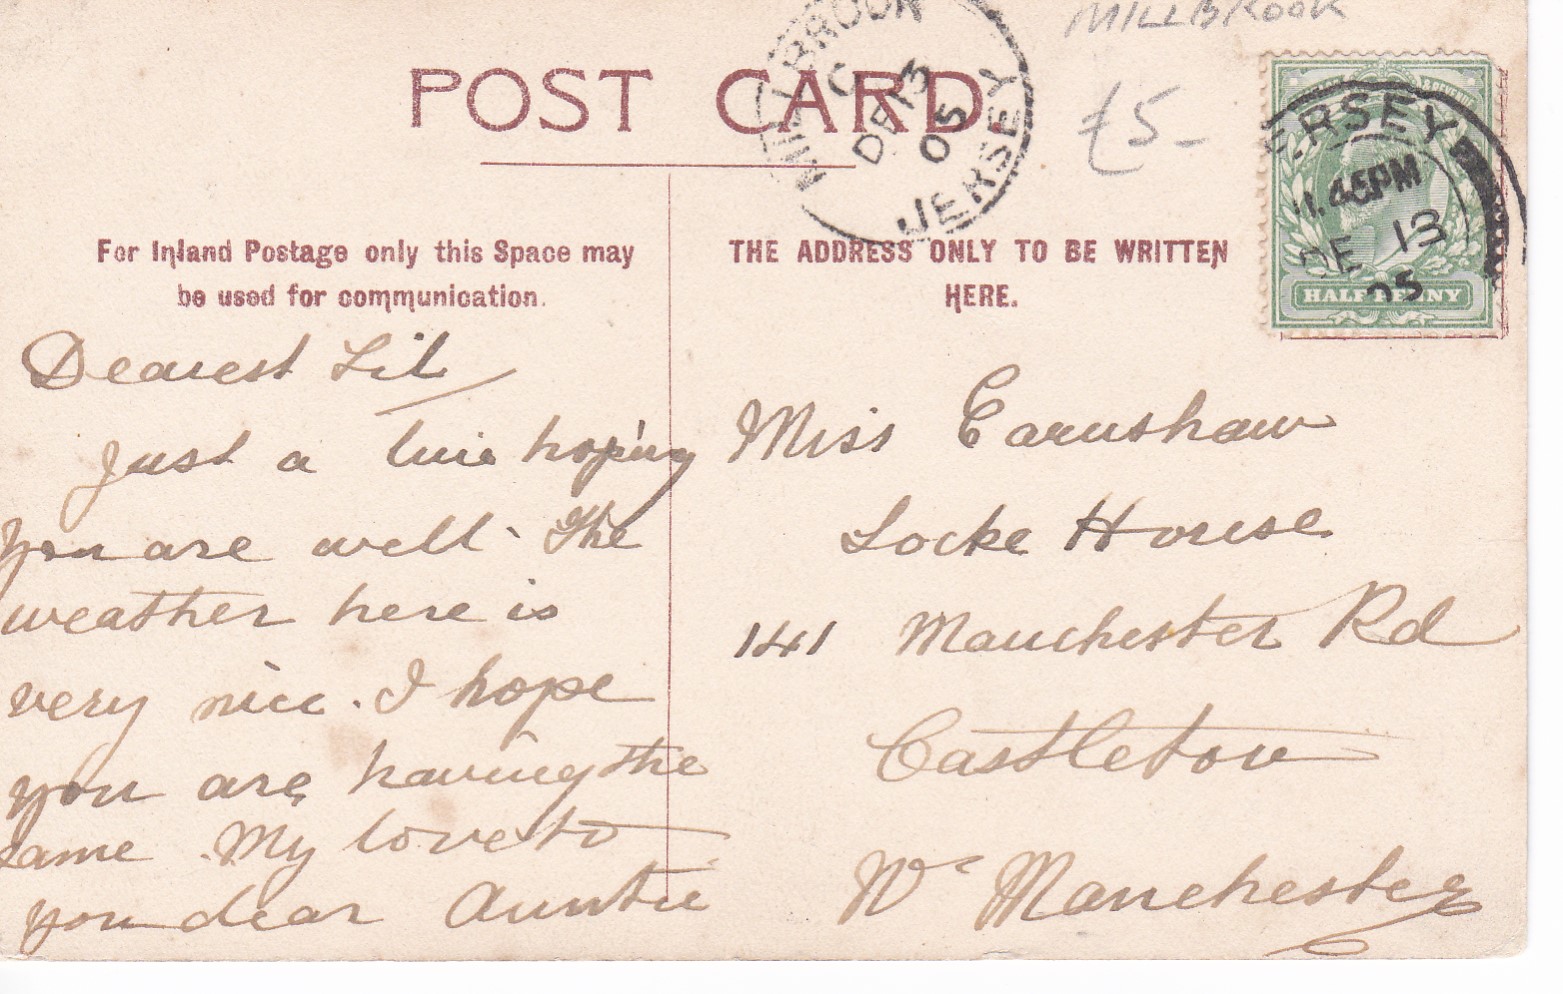 MILLBROOK
POST CARD.
MILLBROOK JERSEY
C
DE 13
05
£5-
JERSEY
11.45PM
DE 13
05
HALFPENNY
For Inland Postage only this Space may
be used for communication.
THE ADDRESS ONLY TO BE WRITTEN
HERE.
Dearest Lil
Just a line hoping
you are well. The
weather here is
very nice. I hope
you are having the
same. My love to
you dear Auntie
Miss Earnshaw
Locke House
141 Manchester Rd
Castleton
Nr Manchester